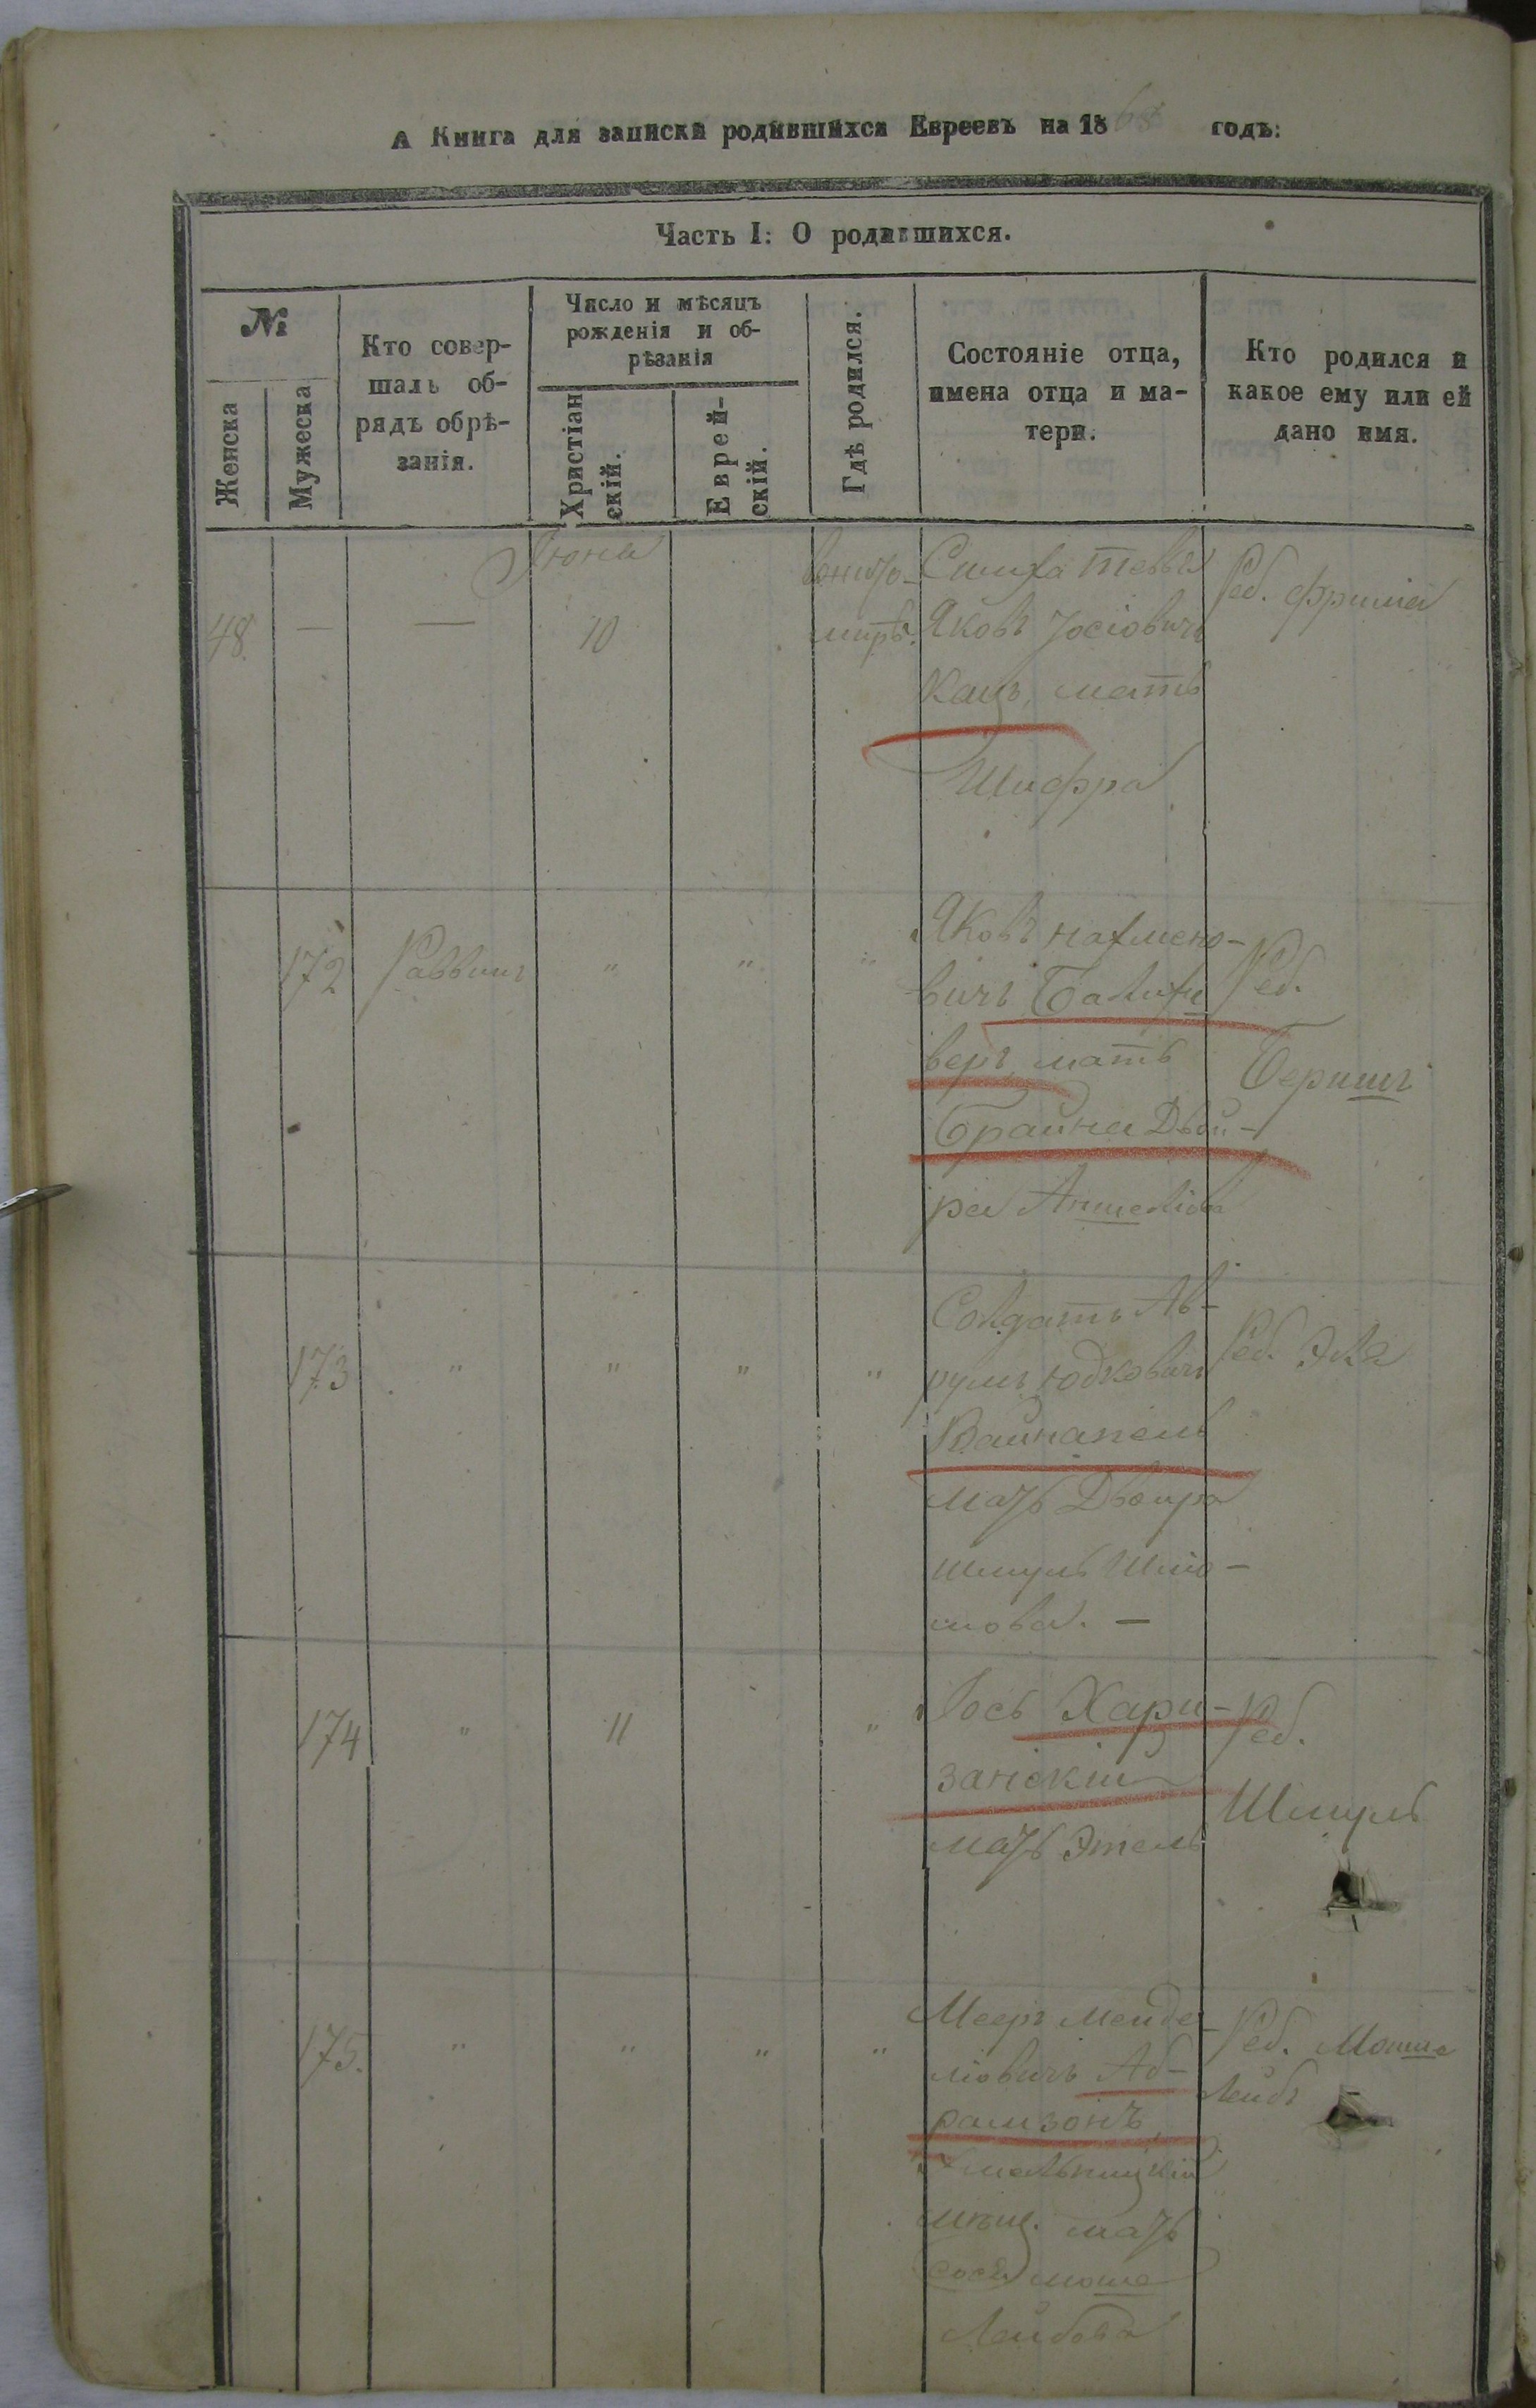 А Книга для записки родившихся Евреевъ на 1868 годъ:
Часть I: О родившихся.
№
Женска
Мужеска
Кто совер-
шалъ об-
рядъ обрѣ-
занія.
Число и мѣсяцъ
рожденія и об-
рѣзанія
Христіан
скій.
Еврей-
скій.
Гдѣ родился.
Состояніе отца,
имена отца и ма-
тери.
Кто родился и
какое ему или ей
дано имя.
Іюня
48. — — 10
Симха Тевья
Яковъ Іосіовичъ
Кацъ, мать
Шифра
Реб. Фрима
172 Раввинъ " " "
Яковъ Нахмено-
вичъ Балихи
веръ, мать
Брайна Двой-
ра Аншелiова
Реб.
Беришъ
173 " " " "
Солдатъ Ав-
румъ Юдковичъ
Вайнапель
мать Двойра
Шмуль Шлiо-
мова. —
Реб. Эля
174 " 11 "
Іось Хари-
занскій
мать Этель
Реб.
Шмуль
175. " " " "
Мееръ Менде-
лiовичъ Аб-
рамзонъ,
Хмельницкій
мѣщ. мать
Сося Моше
Лейбова
Реб. Мошше
Лейбъ